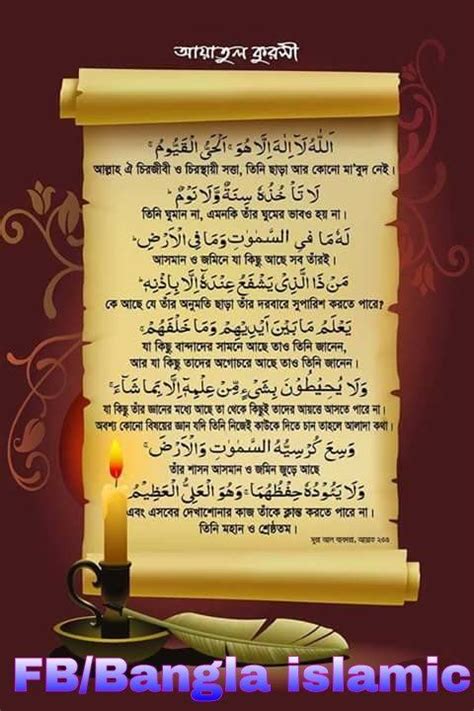 আয়াতুল কুরসী
اَللّٰهُ لَآ اِلٰهَ اِلَّا هُوَ ۚ اَلْحَىُّ الْقَيُّوْمُ ۚ
আল্লাহ ঐ চিরজীবী ও চিরস্থায়ী সত্তা, তিনি ছাড়া আর কোনো মা'বুদ নেই।
لَا تَاْ خُذُهٗ سِنَةٌ وَّلَا نَوْمٌ ۚ
তিনি ঘুমান না, এমনকি তাঁর ঘুমের ভাবও হয় না।
لَهٗ مَا فِى السَّمٰوٰتِ وَمَا فِى الْاَرْضِ ۚ
আসমান ও জমিনে যা কিছু আছে সব তাঁরই।
مَنْ ذَا الَّذِىْ يَشْفَعُ عِنْدَهٗٓ اِلَّا بِاِذْنِهٖ ۚ
কে আছে যে তাঁর অনুমতি ছাড়া তাঁর দরবারে সুপারিশ করতে পারে?
يَعْلَمُ مَا بَيْنَ اَيْدِيْهِمْ وَمَا خَلْفَهُمْ ۚ
যা কিছু বান্দাদের সামনে আছে তাও তিনি জানেন,
আর যা কিছু তাদের অগোচরে আছে তাও তিনি জানেন।
وَلَا يُحِيْطُوْنَ بِشَىْءٍ مِّنْ عِلْمِهٖٓ اِلَّا بِمَا شَآءَ ۚ
যা কিছু তাঁর জ্ঞানের মধ্যে আছে তা থেকে কিছুই তাদের আয়ত্তে আসতে পারে না।
অবশ্য কোনো বিষয়ের জ্ঞান যদি তিনি নিজেই কাউকে দিতে চান তাহলে আলাদা কথা।
وَسِعَ كُرْسِيُّهُ السَّمٰوٰتِ وَالْاَرْضَ ۚ
তাঁর শাসন আসমান ও জমিন জুড়ে আছে
وَلَا يَئُوْدُهٗ حِفْظُهُمَا ۚ وَهُوَ الْعَلِىُّ الْعَظِيْمُ
এবং এসবের দেখাশোনার কাজ তাঁকে ক্লান্ত করতে পারে না।
তিনি মহান ও শ্রেষ্ঠতম।
সূরা আল বাকারা, আয়াত ২৫৫
FB/Bangla islamic